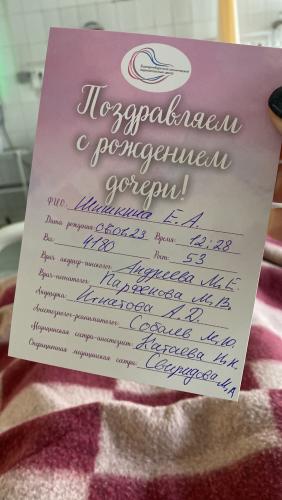 Екатеринбургский клинический
перинатальный центр
Поздравляем
с рождением
дочери!
Ф.И.О. Шишкина Е. А.
Дата рождения 09.01.23 Время: 12:28
Вес: 4180 Рост: 53
Врач акушер-гинеколог: Андреева М.Е.
Врач-неонатолог: Парфенова М.В.
Акушерка: Игнатова А.Д.
Анестезиолог-реаниматолог: Соболев М.Ю.
Медицинская сестра-анестезист: Катаева Н.К.
Операционная медицинская сестра: Свиридова М.А